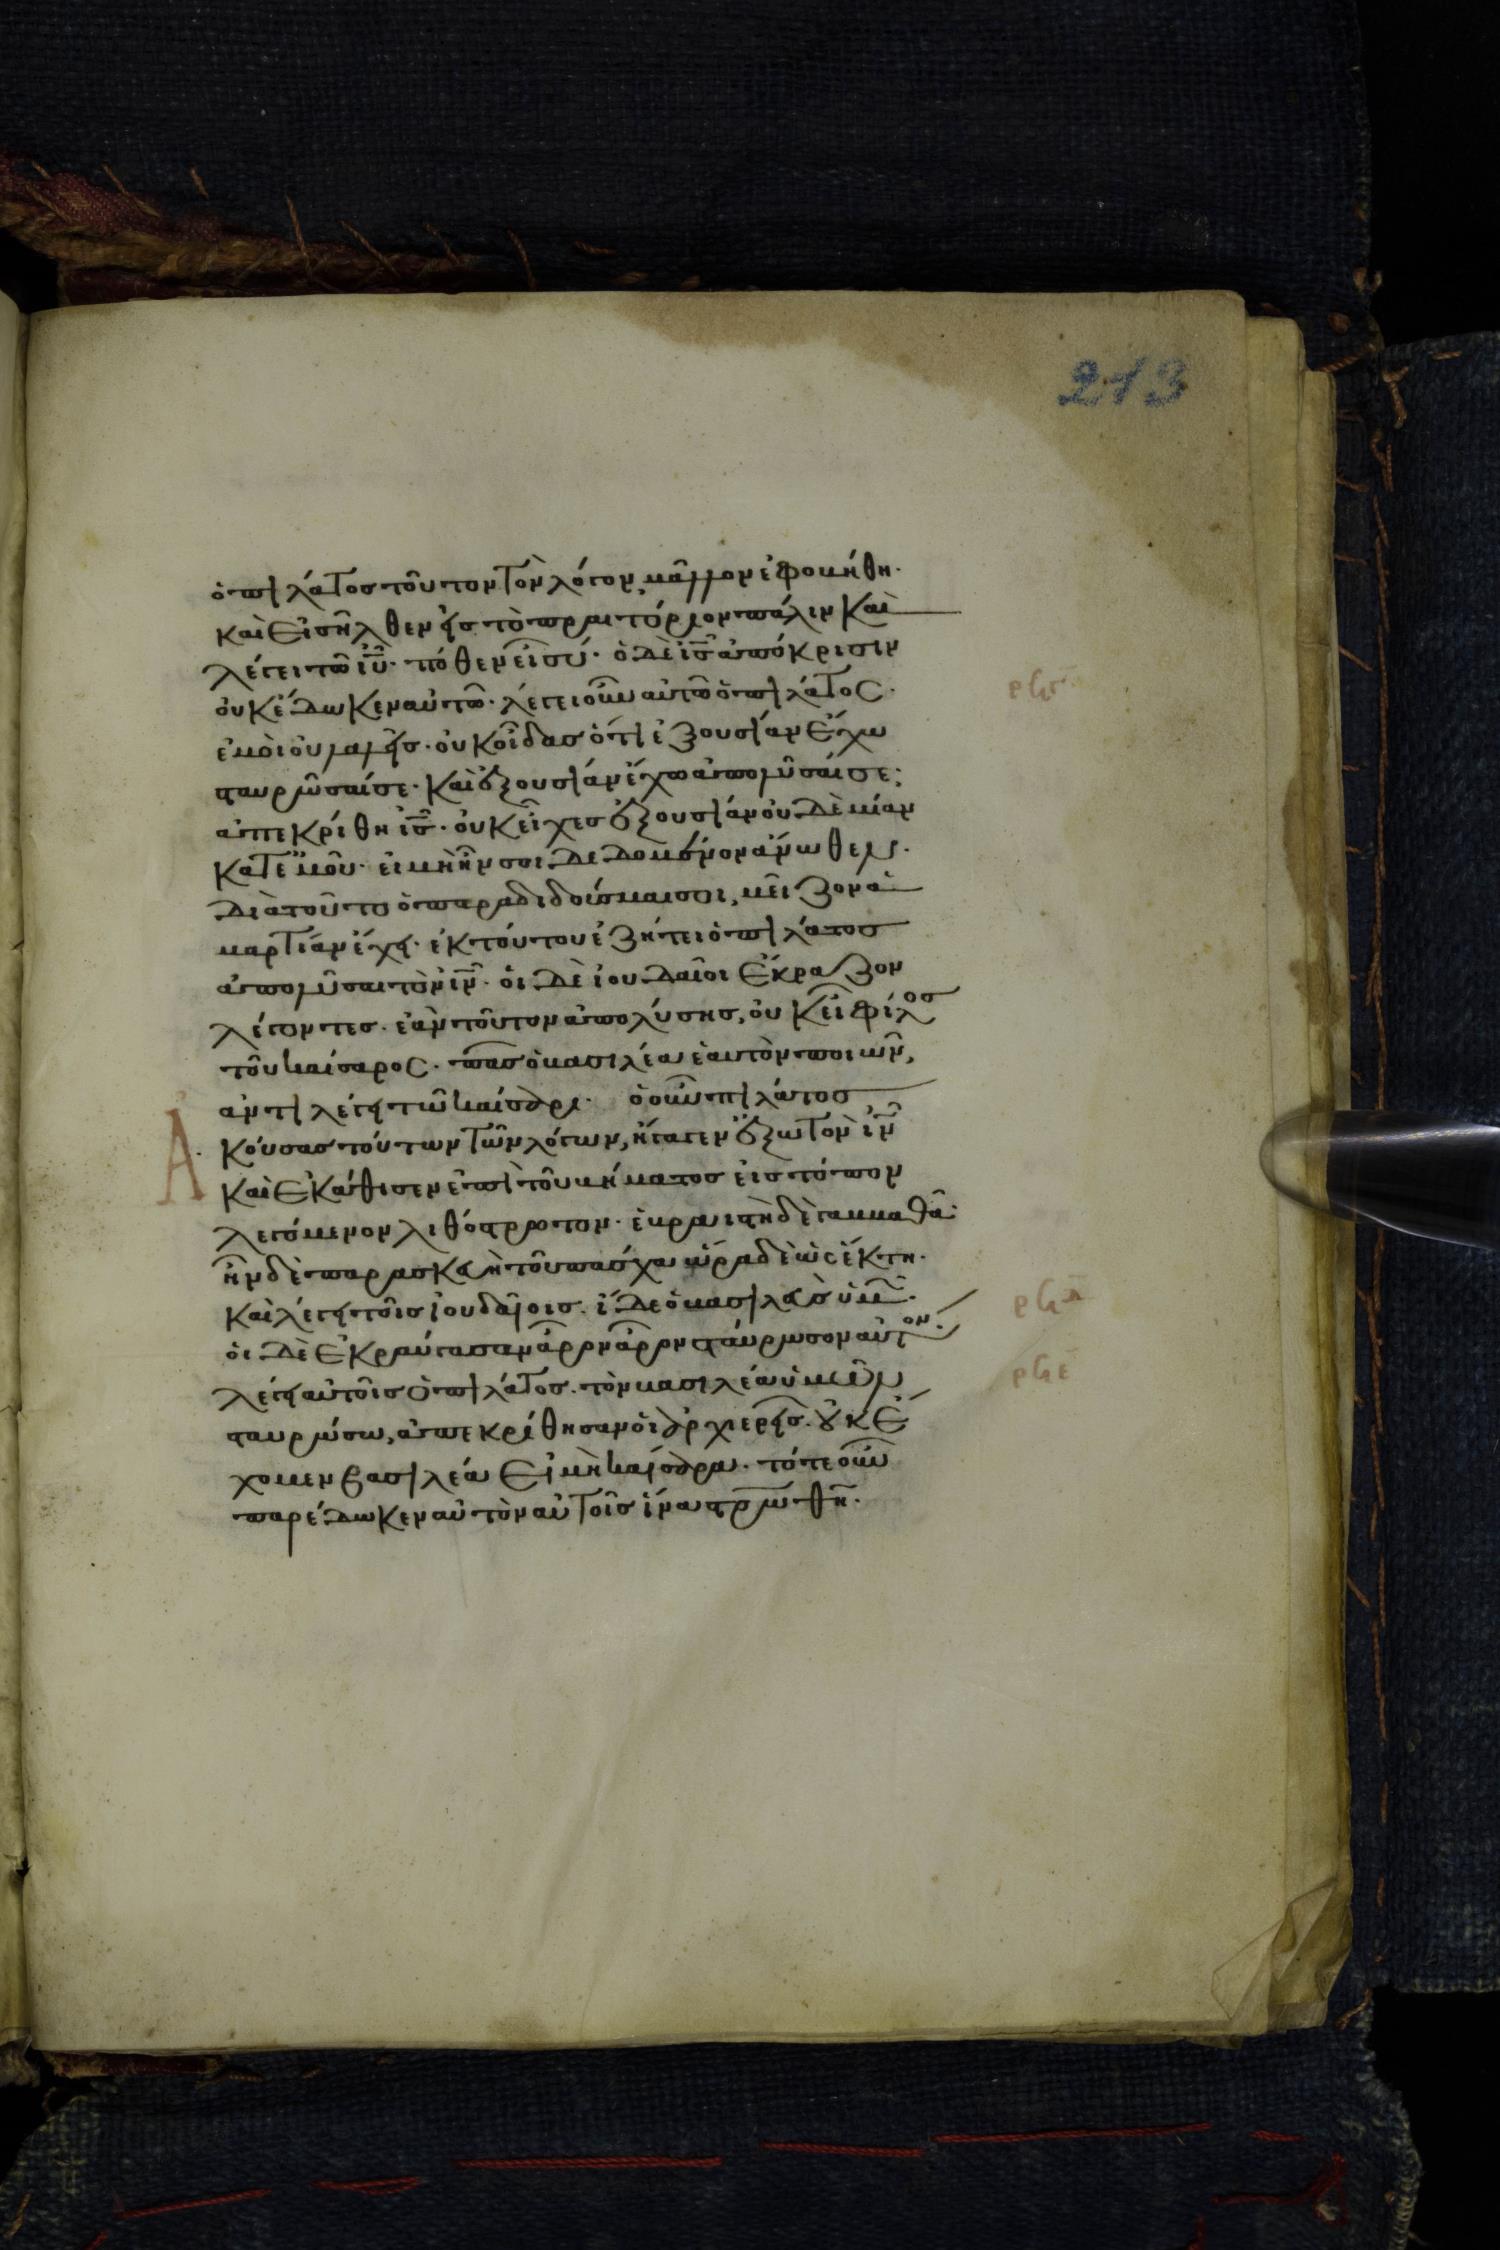 213
ὁ πιλάτος τοῦτον τὸν λόγον, μᾶλλον ἐφοβήθη·
καὶ εἰσῆλθεν εἰς τὸ πραιτόριον πάλιν καὶ
λέγει τῶ ἰῦ· πόθεν εἶ σύ· ὁ δὲ ἰς ἀπόκρισιν
οὐκ ἔδωκεν αὐτῶ· λέγει οὖν αὐτῶ ὁ πιλάτος·
ἐμοὶ οὐ λαλεῖς· οὐκ οἶδας ὅτι ἐξουσίαν ἔχω
σταυρῶσαί σε· καὶ ἐξουσίαν ἔχω ἀπολῦσαί σε;
ἀπεκρίθη ἰς· οὐκ εἶχες ἐξουσίαν οὐδὲ μίαν
κατ ἐμοῦ· εἰ μὴ ἦν σοι δεδομένον ἄνωθεν·
διὰ τοῦτο ὁ παραδιδούς μαι σοι, μεῖζον ἁ
μαρτίαν ἔχει· ἐκ τούτου ἐζήτει ὁ πιλάτος
ἀπολῦσαι τὸν ἰν· οἱ δὲ ἰουδαῖοι ἔκραζον
λέγοντες· ἐὰν τοῦτον ἀπολύσης, οὐκ εἶ φίλος
τοῦ καίσαρος· πᾶς ὁ βασιλέα ἑαυτὸν ποιῶν,
ἀντιλέγει τῶ καίσαρι· ὁ οὖν πιλάτος
Ἀκούσας τούτων τῶν λόγων, ἤγαγεν ἔξω τὸν ἰν
καὶ ἐκάθισεν ἐπὶ τοῦ βήματος εἰς τόπον
λεγόμενον λιθόστρωτον· ἑβραιστὴ δὲ γαββαθᾶ·
ἦν δὲ παρασκευὴ τοῦ πάσχα ὥρα δὲ ὡς ἕκτη·
καὶ λέγει τοῖς ἰουδαίοις· ἴδε ὁ βασιλεὺς ὑμῶν·
οἱ δὲ ἐκραύγασαν ἆρον ἆρον σταύρωσον αὐτόν·
λέγει αὐτοῖς ὁ πιλάτος· τὸν βασιλέα ὑμῶν
σταυρώσω, ἀπεκρίθησαν οἱ ἀρχιερεῖς· οὐκ ἔ
χομεν βασιλέα εἰ μὴ καίσαρα· τότε οὖν
παρέδωκεν αὐτὸν αὐτοῖς ἵνα σταυρωθῆ·